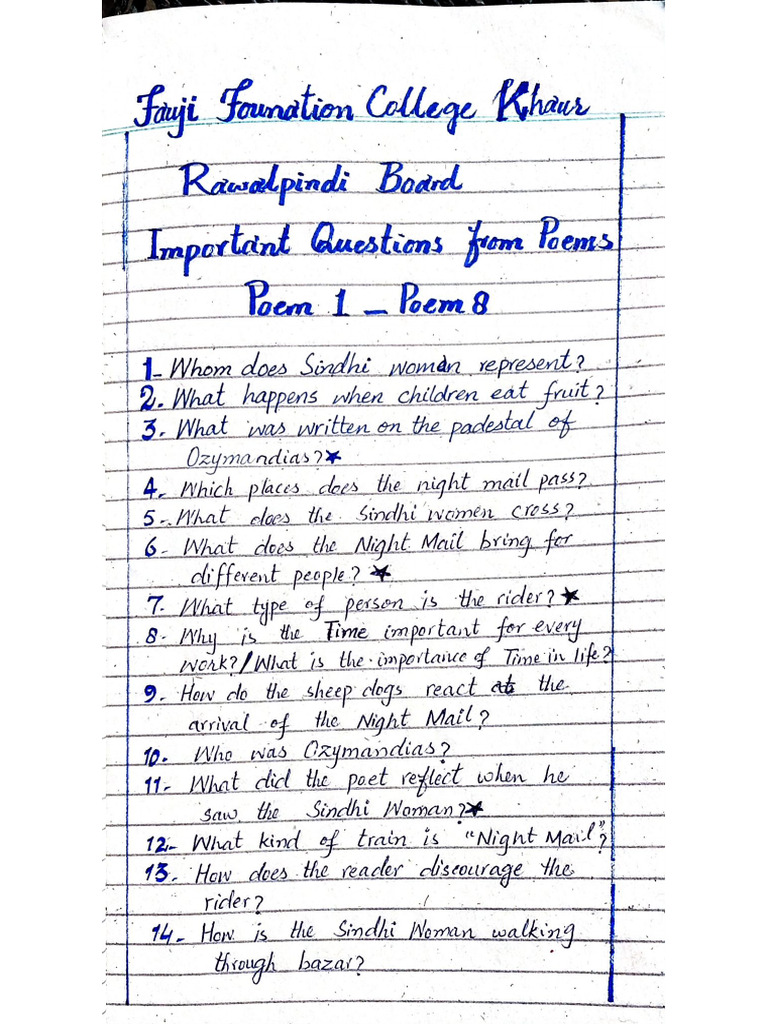 Fauji Founation College Khaur
Rawalpindi Board
Important Questions from Poems
Poem 1 _ Poem 8
1- Whom does Sindhi woman represent?
2. What happens when children eat fruit?
3. What was written on the padestal of
Ozymandias?★
4- Which places does the night mail pass?
5-. What does the Sindhi women cross?
6- What does the Night Mail bring for
different people? ★
7- What type of person is the rider?★
8- Why is the Time important for every
work?/What is the importance of Time in life?
9- How do the sheep dogs react at the
arrival of the Night Mail?
10- Who was Ozymandias?
11- What did the poet reflect when he
saw the Sindhi Woman?★
12- What kind of train is "Night Mail"?
13- How does the reader discourage the
rider?
14- How is the Sindhi Woman walking
through bazar?